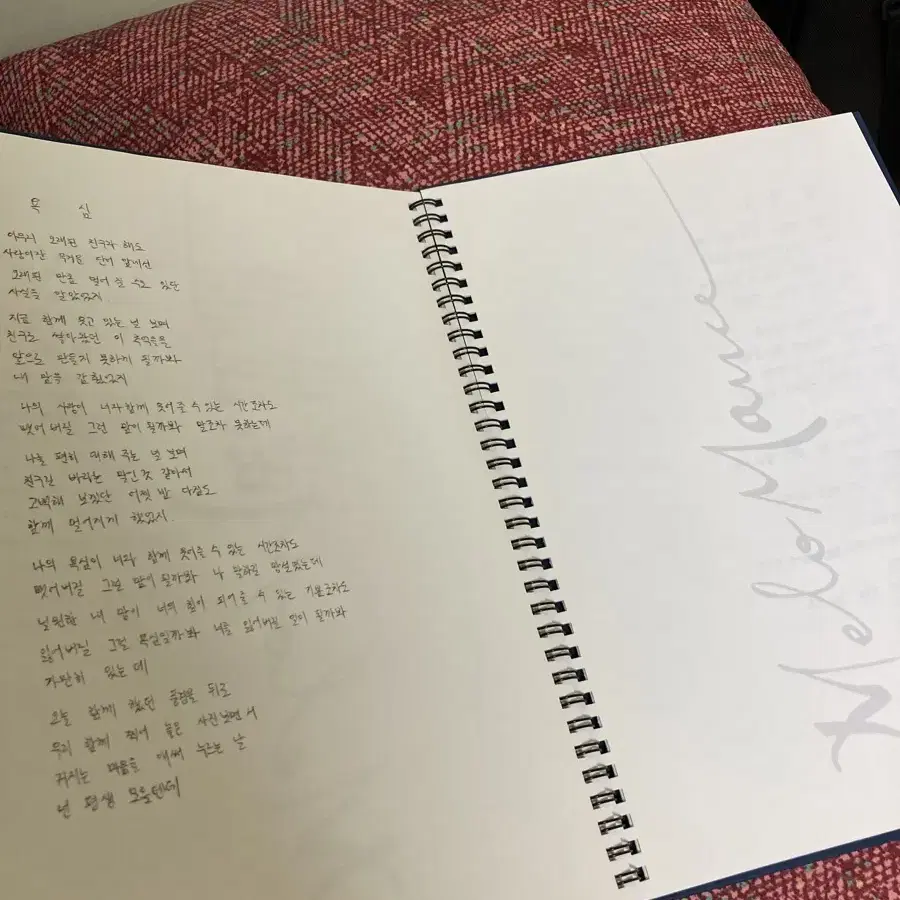 욕 심
아무리 오래된 친구라 해도
사랑이란 무거운 단어 앞에선
오래된 만큼 멀어질 수도 있단
사실을 알았었지
지금 함께 웃고 있는 널 보며
친구로 쌓아왔던 이 추억들을
앞으로 만들지 못하게 될까봐
내 말을 감췄었지
나의 사랑이 너와 함께 웃어줄 수 있는 시간조차도
뺏어버릴 그런 말이 될까봐 말조차 못하는데
나를 편히 대해 주는 널 보며
친구란 바라는 것 같아서
고백해 보겠단 어젯밤 다짐도
함께 멀어지게 했었지
나의 욕심이 너와 함께 웃어줄 수 있는 시간조차도
뺏어버릴 그런 말이 될까봐 나 말하길 망설였는데
널 원한 내 맘이 너의 힘이 되어줄 수 있는 기회조차도
잃어버릴 그런 욕심일까봐 너를 잃어버린 말이 될까봐
가만히 있는데
오늘 함께 했던 즐거움을 뒤로
우리 함께 찍어 놓은 사진 보면서
커지는 마음을 애써 누르는 날
넌 평생 모를텐데
MeloMance